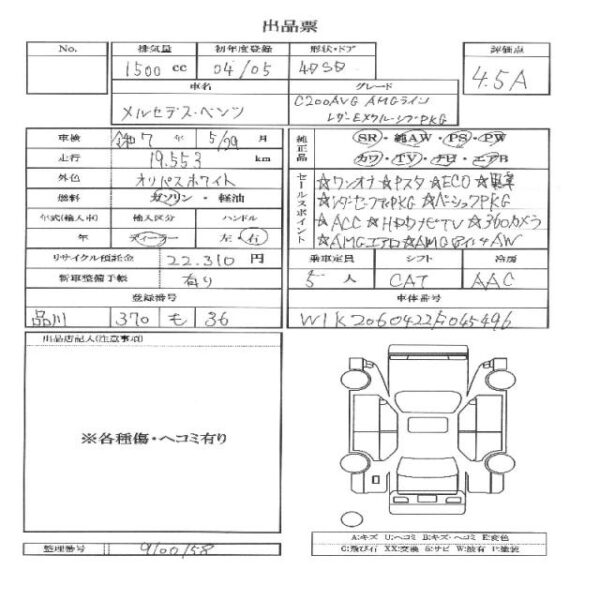 出品票
No. 排気量 初年度登録 形状・ドア 評価点
1500 cc 04/05 4DSD 4.5A
車名 グレード
メルセデス・ベンツ C200AVG AMGライン
レザーEXクルーシブPKG
車検 令和7年 5/29月 純正品 SR・純AW・PS・PW
走行 19.553 km カワ・TV・ナビ・エアB
外色 オリパスホワイト セールスポイント ☆ワンオナ☆Pスタ☆ECO☆黒革
燃料 ガソリン・軽油 ☆レーダーセーフティPKG☆ベーシックPKG
年式(輸入車) 輸入区分 ハンドル ☆ACC☆HDDナビTV☆360カメラ
年 ディーラー 左・右 ☆AMGエアロ☆AMG AW
リサイクル預託金 22.310円 乗車定員 シフト 冷房
新車整備手帳 有り 5人 CAT AAC
登録番号 車体番号
品川 370 も 36 W1K2060422F045496
出品店記入(注意事項)
※各種傷・ヘコミ有り
A:キズ U:ヘコミ B:キズ・ヘコミ E:変色
C:飛び石 XX:交換 S:サビ W:波有 P:塗装
整理番号 9100158